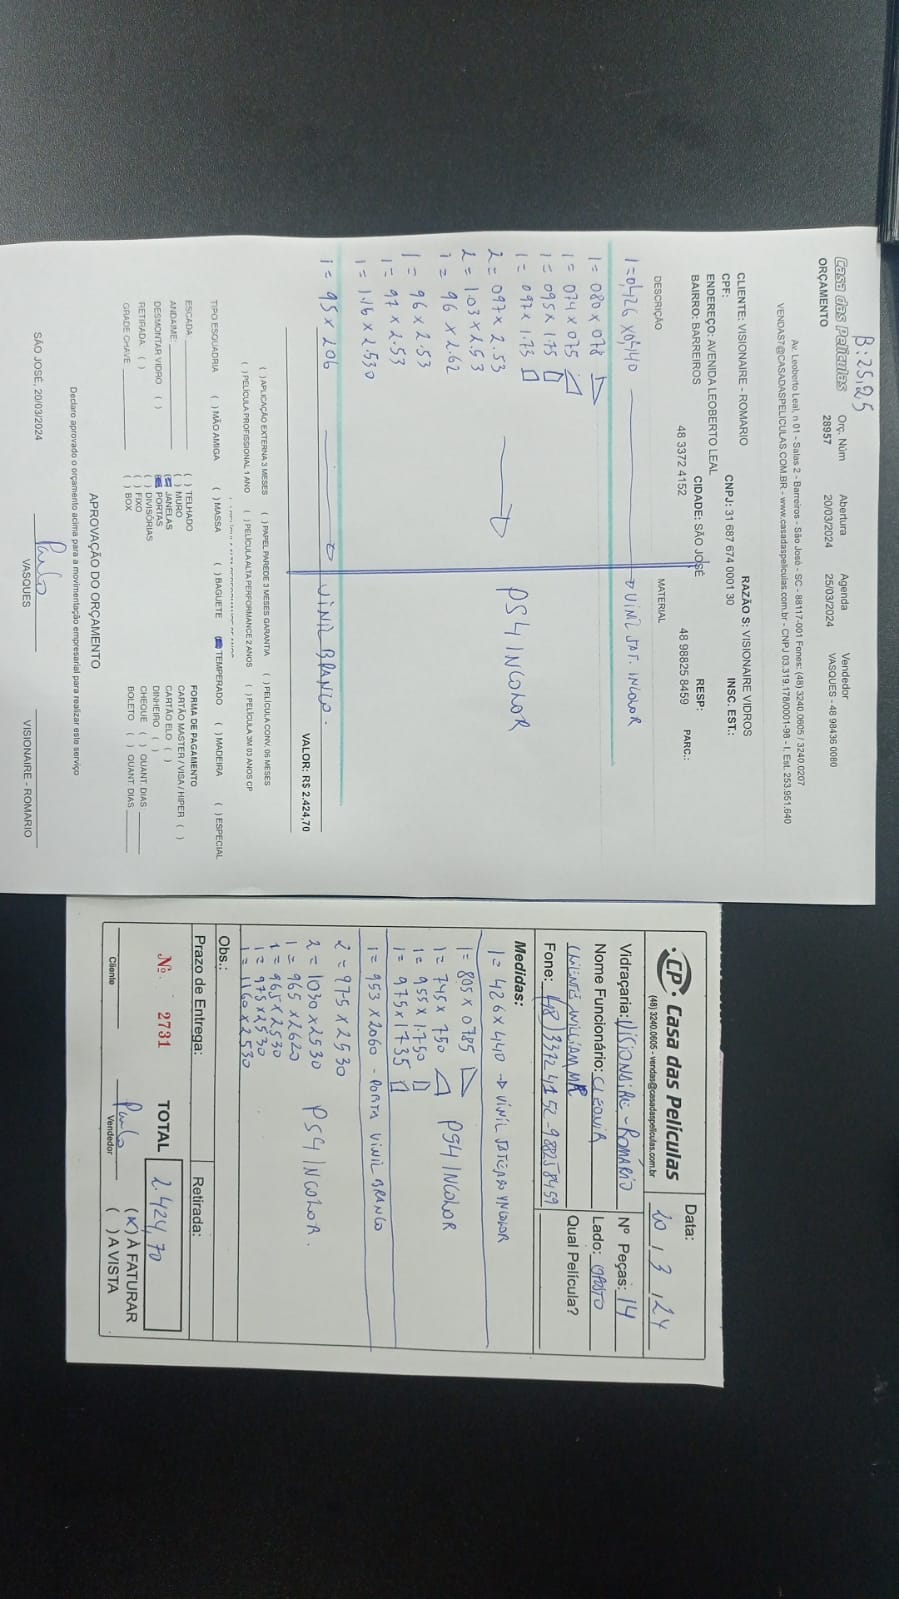 B: 25,25
Casa das Películas
ORÇAMENTO
Orç. Núm
28957
Abertura
20/03/2024
Agenda
25/03/2024
Vendedor
VASQUES - 48 98436 0080
Av. Leoberto Leal, n 01 - Salas 2 - Barreiros - São José - SC - 88117-001 Fones: (48) 3240.0605 / 3240.0207
VENDAS7@CASADASPELICULAS.COM.BR - www.casadaspeliculas.com.br - CNPJ 03.319.178/0001-98 - I. Est. 253.951.640
CLIENTE: VISIONAIRE - ROMARIO
RAZÃO S: VISIONAIRE VIDROS
CPF:
CNPJ: 31 687 674 0001 30
INSC. EST.:
ENDEREÇO: AVENIDA LEOBERTO LEAL
BAIRRO: BARREIROS
CIDADE: SÃO JOSÉ
RESP:
48 3372 4152
48 98825 8459
PARC.:
DESCRIÇÃO
MATERIAL
1=0,426 x 0,440 → VINIL JAT. INCOLOR
1= 080 x 078
1= 074 x 075
1= 095 x 1.75
1= 097 x 1.73
2= 097 x 2.53 → PS4 INCOLOR
2= 1.03 x 2.53
1= 96 x 2.62
1= 96 x 2.53
1= 97 x 2.53
1= 1.16 x 2.530
1= 95 x 206 → VINIL BRANCO.
VALOR: R$ 2.424,70
( ) APLICAÇÃO EXTERNA 3 MESES ( ) PAPEL PAREDE 3 MESES GARANTIA ( ) PELÍCULA CONV. 06 MESES
( ) PELÍCULA PROFISSIONAL 1 ANO ( ) PELÍCULA ALTA PERFORMANCE 2 ANOS ( ) PELÍCULA 3M 03 ANOS CP
TIPO ESQUADRIA ( ) MÃO AMIGA ( ) MASSA ( ) BAGUETE TEMPERADO ( ) MADEIRA ( ) ESPECIAL
ESCADA:
ANDAIME:
DESMONTAR VIDRO ( )
RETIRADA ( )
GRADE CHAVE
( ) TELHADO
( ) MURO
JANELAS
PORTAS
( ) DIVISÓRIAS
( ) FIXO
( ) BOX
FORMA DE PAGAMENTO
CARTÃO MASTER / VISA / HIPER ( )
CARTÃO ELO ( )
DINHEIRO ( )
CHEQUE ( ) QUANT. DIAS
BOLETO ( ) QUANT. DIAS
APROVAÇÃO DO ORÇAMENTO
Declaro aprovado o orçamento acima para a movimentação empresarial para realizar este serviço
SÃO JOSÉ, 20/03/2024
VASQUES
VISIONAIRE - ROMARIO
CP Casa das Películas
(48) 3240.0605 - vendas@casadaspeliculas.com.br
Data:
20 / 3 / 24
Vidraçaria: VISIONAIRE - ROMÁRIO
Nº Peças: 14
Nome Funcionário:
Lado: OPOSTO
Qual Película?
Fone: (48) 3372 4152 - 98825 8459
Medidas:
1= 426 x 440 → VINIL JATEADO INCOLOR
1= 805 x 0785
1= 745 x 750
1= 955 x 1750 PS4 INCOLOR
1= 975 x 1735
1= 953 x 2060 - PORTA VINIL BRANCO
2= 975 x 2530
2= 1030 x 2530 PS4 INCOLOR.
1= 965 x 2620
1= 965 x 2530
1= 975 x 2530
1= 1160 x 2530
Obs.:
Prazo de Entrega:
Retirada:
Nº 2731
TOTAL 2.424,70
(X) À FATURAR
( ) A VISTA
Cliente
Vendedor